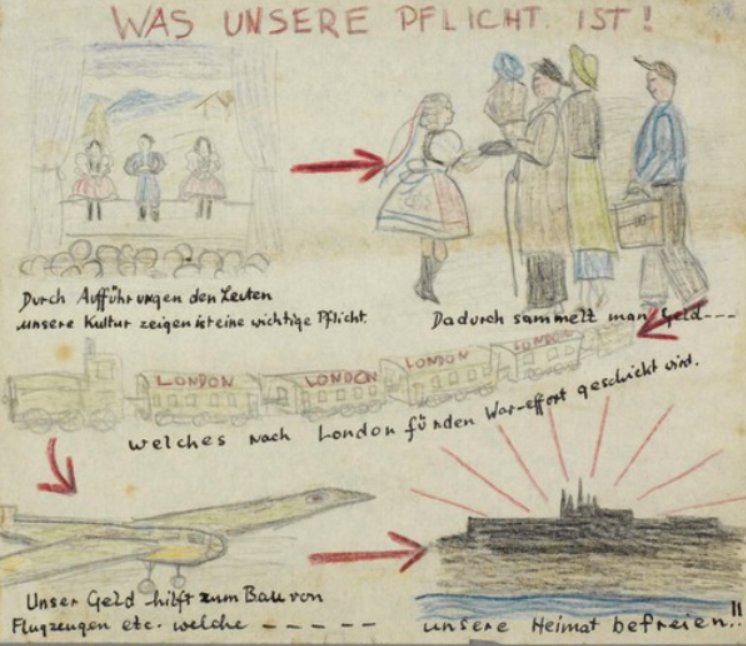 WAS UNSERE PFLICHT IST!
Durch Aufführungen den Leuten
unsere Kultur zeigen ist eine wichtige Pflicht.
Dadurch sammelt man Geld---
LONDON LONDON LONDON LONDON
welches nach London für den War-effort geschickt wird.
Unser Geld hilft zum Bau von
Flugzeugen etc. welche - - - - -
unsere Heimat befreien!!